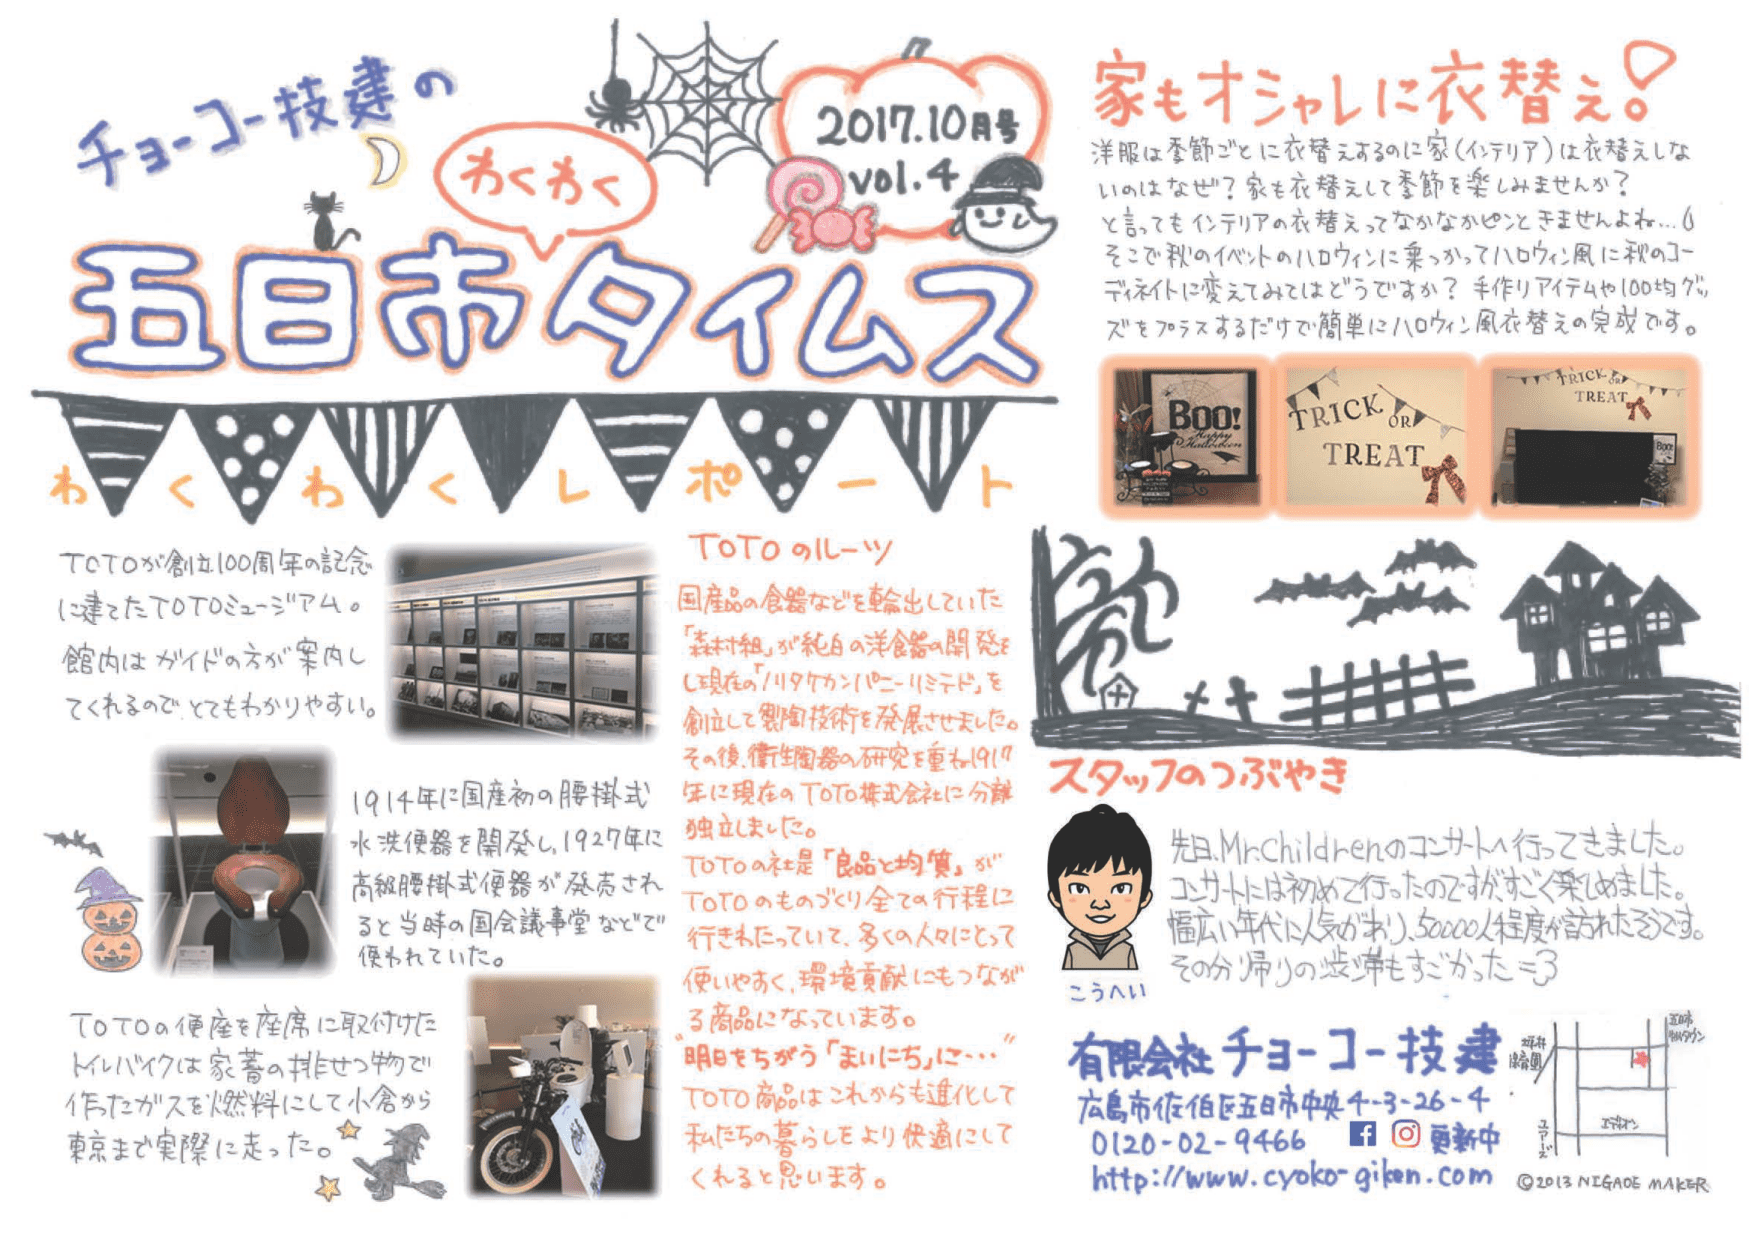 チョーコー技建の
わくわく
五日市タイムス
2017.10月号
vol.4
わくわくレポート
TOTOが創立100周年の記念
に建てたTOTOミュージアム。
館内はガイドの方が案内し
てくれるのでとてもわかりやすい。
1914年に国産初の腰掛式
水洗便器を開発し、1927年に
高級腰掛式便器が発売され
ると当時の国会議事堂などで
使われていた。
TOTOの便座を座席に取付けた
トイレバイクは家畜の排せつ物で
作ったガスを燃料にして小倉から
東京まで実際に走った。
TOTOのルーツ
国産品の食器などを輸出していた
「森村組」が純白の洋食器の開発を
し現在の「ノリタケカンパニーリミテド」を
創立して製陶技術を発展させました。
その後、衛生陶器の研究を重ね1917
年に現在のTOTO株式会社に分離
独立しました。
TOTOの社是「良品と均質」が
TOTOのものづくり全ての行程に
行きわたっていて、多くの人々にとって
使いやすく、環境貢献にもつなが
る商品になっています。
"明日をちがう「まいにち」に…"
TOTO商品はこれからも進化して
私たちの暮らしをより快適にして
くれると思います。
家もオシャレに衣替え!
洋服は季節ごとに衣替えするのに家(インテリア)は衣替えしな
いのはなぜ?家も衣替えして季節を楽しみませんか?
と言ってもインテリアの衣替えってなかなかピンときませんよね…
そこで秋のイベントのハロウィンに乗っかってハロウィン風に秋のコー
ディネイトに変えてみてはどうですか?手作りアイテムや100均グッ
ズをプラスするだけで簡単にハロウィン風衣替えの完成です。
BOO!
Happy
Halloween
TRICK
OR
TREAT
TRICK
OR
TREAT
BOO!
スタッフのつぶやき
先日、Mr.Childrenのコンサートへ行ってきました。
コンサートには初めて行ったのですが、すごく楽しめました。
幅広い年代に人気があり、50000人程度が訪れたそうです。
その分帰りの渋滞もすごかった=3
こうへい
有限会社チョーコー技建
広島市佐伯区五日市中央4-3-26-4
0120-02-9466 更新中
http://www.cyoko-giken.com
五日市
坪井
保育園
エディオン
ユアーズ
©2013 NIGAOE MAKER